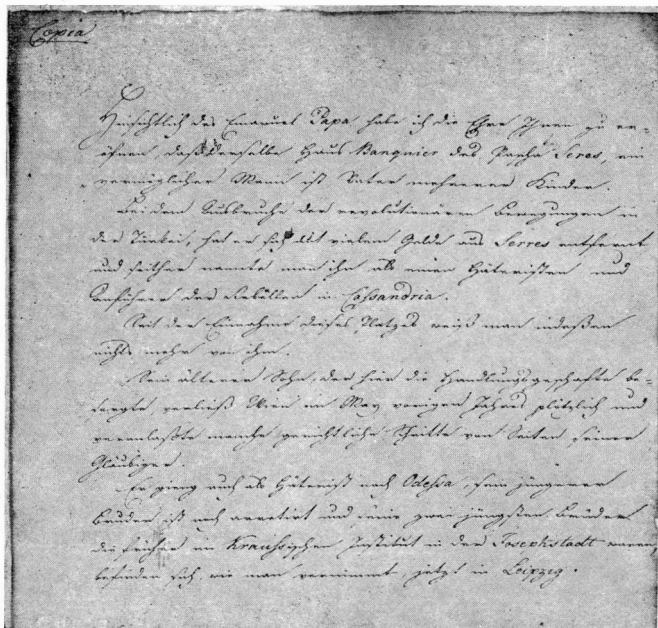 Copia
Hinsichtlich des Emanuel Papa habe ich die Ehre Ihnen zu er=
öfnen, daß derselbe Haus Banquier des Pascha Seres, ein
vermöglicher Mann ist Vater mehrerer Kinder.
Bei dem Ausbruche der revolutionären Bewegungen in
der Türkei, hat er sich mit vielem Gelde aus Serres entfernt
und seither nannte man ihn als einen Häteristen und
Anführer der Rebellen in Cassandria.
Seit der Einnahme dieses Platzes weiß man indeßen
nichts mehr von ihm.
Sein älterer Sohn, der hier die Handlungsgeschäfte be=
sorgte verließ Wien im May vorigen Jahres plötzlich und
veranlaßte manche gerichtliche Schritte von Seiten seiner
Gläubiger.
Er gieng auch als Häterist nach Odessa, sein jüngerer
Bruder ist noch arretirt und seine zwei jüngsten Brüder
die früher im Kraussischen Institut in der Josephstadt waren,
befinden sich, wie man vernimmt, jetzt in Leipzig.